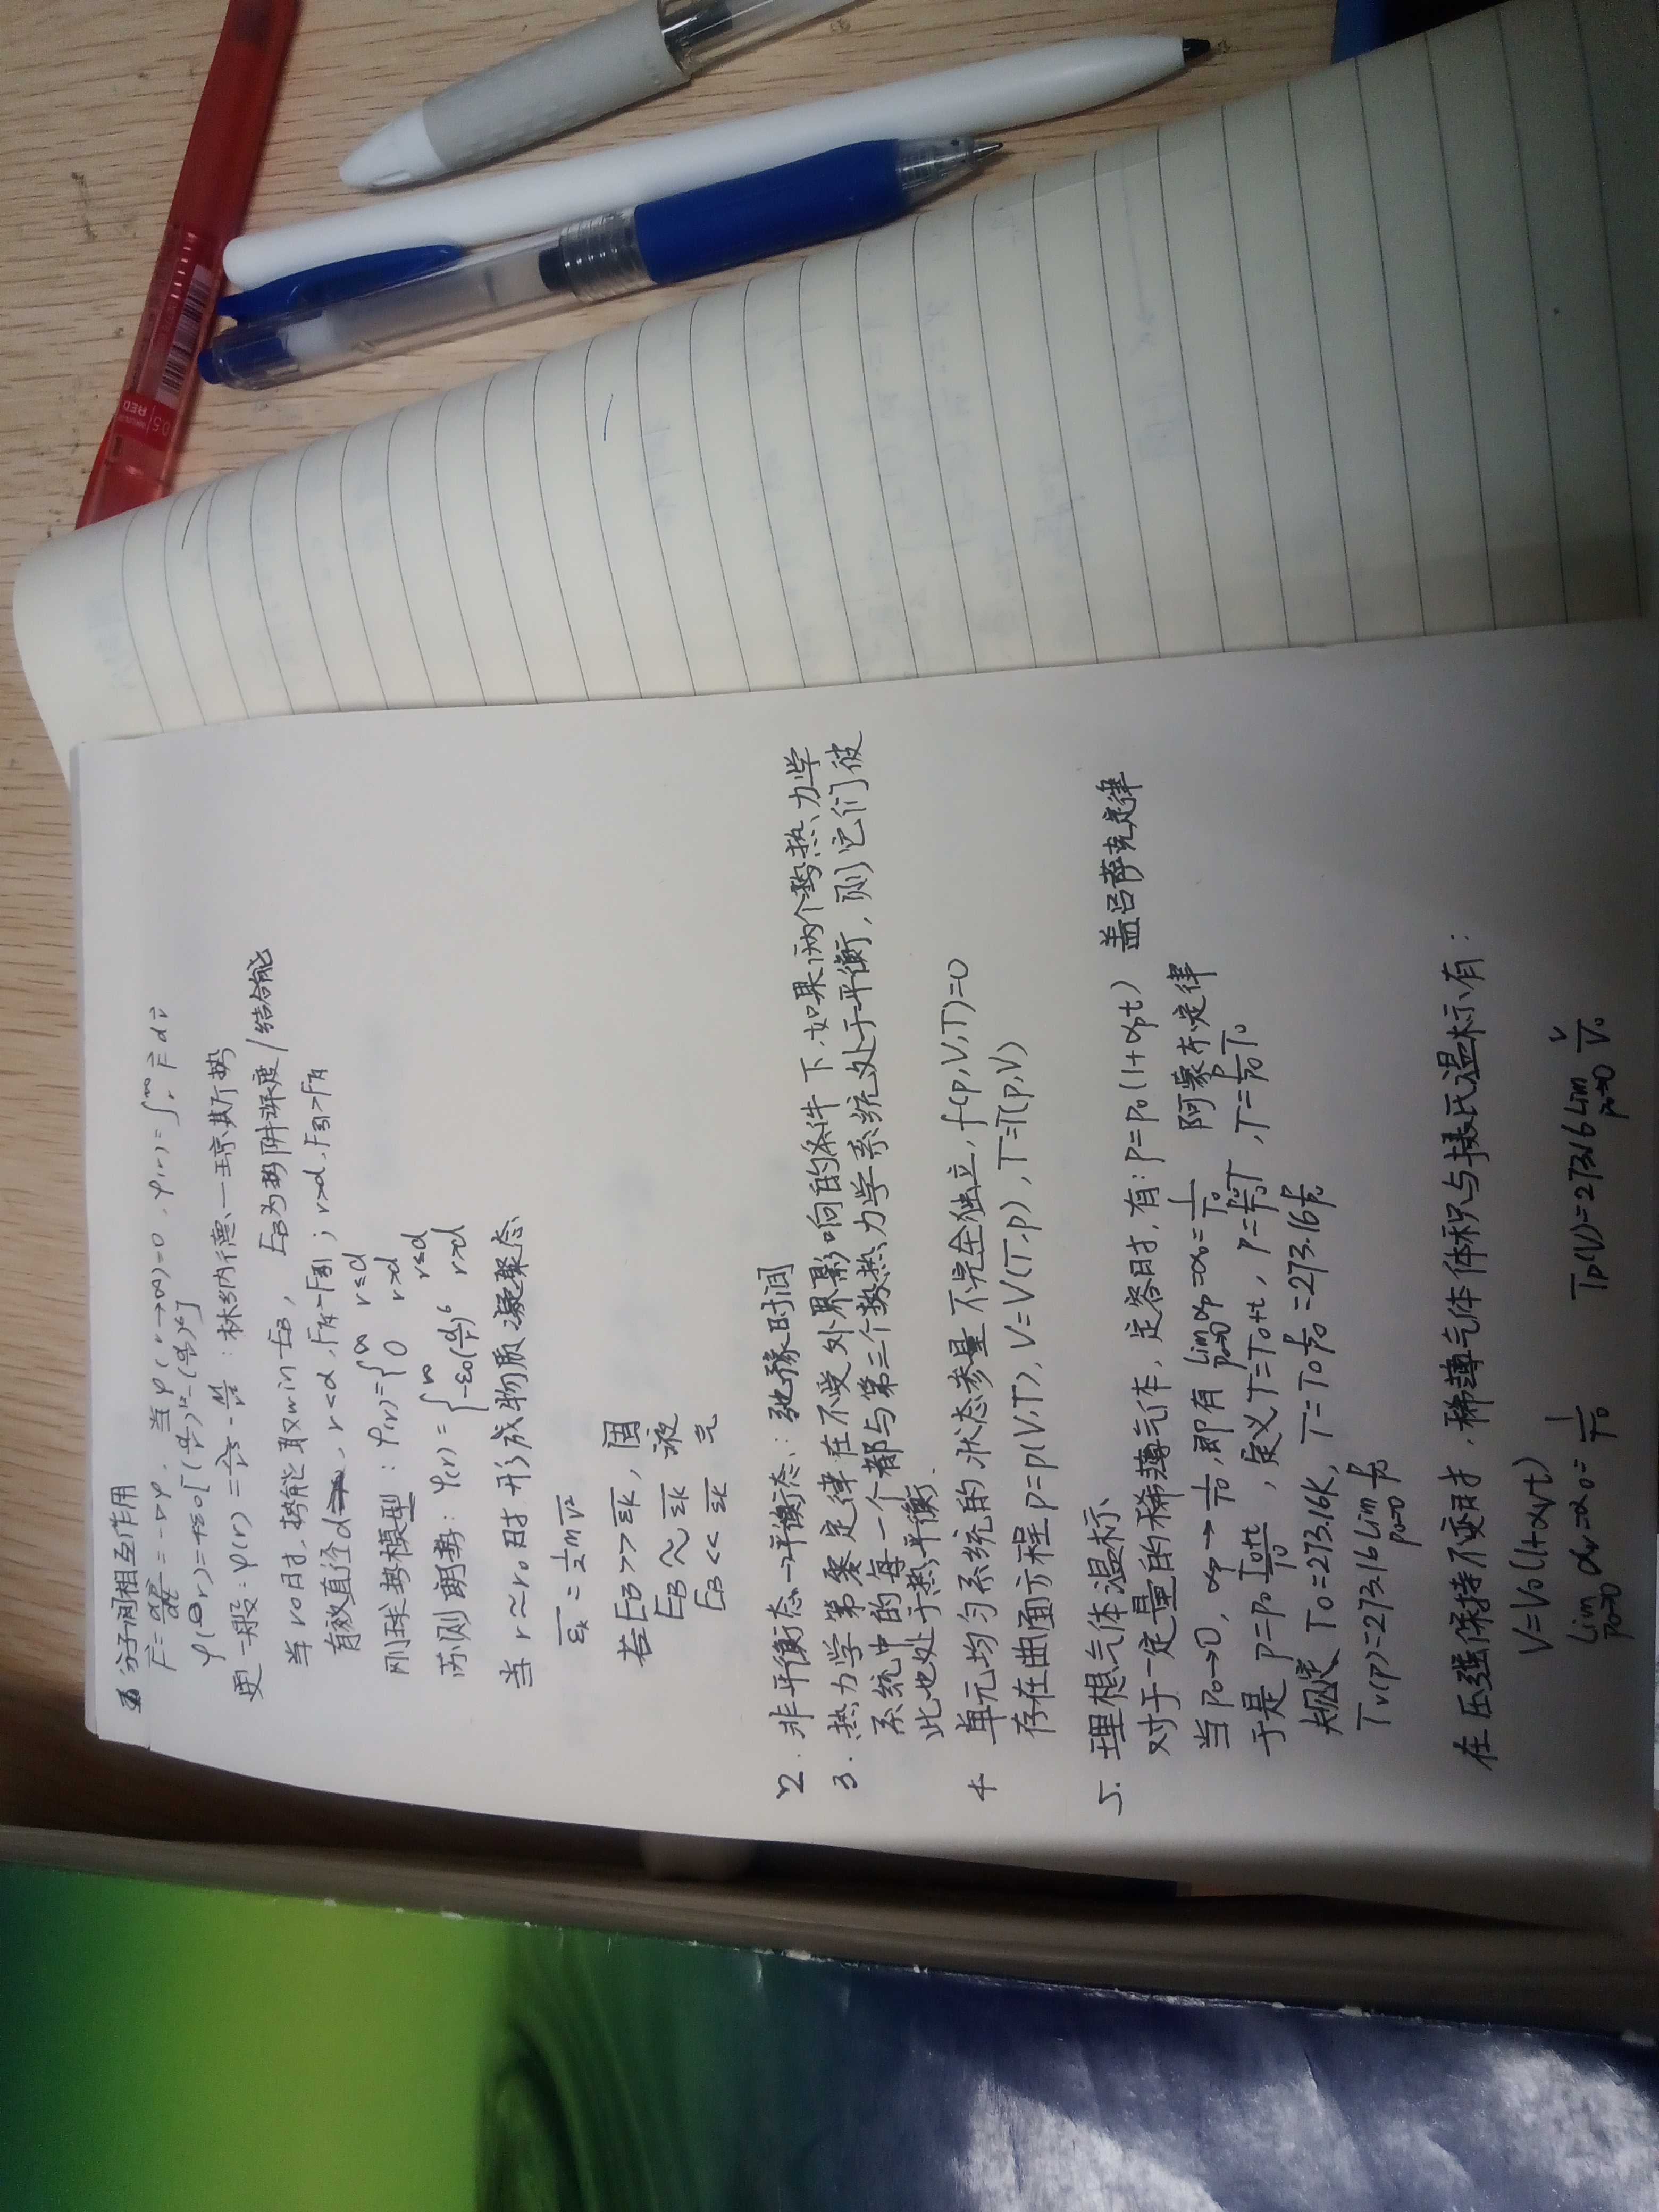 分子间相互作用
F = -▽φ, 当φ(r→∞)=0, φ(r)=∫_r^∞ F dr
更一般: φ(r) = : 林纳德-琼斯势
当r0时, 势能取min -EB, EB为势阱深度/结合能
有效直径d, r<d, F斥>F引; r>d, F引>F斥
刚球势模型: φ(r)={∞ r≤d
0 r>d
苏则朗势: φ(r)={∞ r≤d
-ε0(d/r)^6 r>d
当r≈r0时形成物质凝聚态
εk = 1/2 mv²
若EB>>εk, 固
EB≈εk 液
EB<<εk 气
2. 非平衡态→平衡态: 弛豫时间
3. 热力学第零定律 在不受外界影响的条件下, 如果两个热力学
系统中的每一个都与第三个热力学系统处于平衡, 则它们彼
此也处于热平衡.
4 单元均匀系统的状态参量不完全独立, f(p,V,T)=0
存在曲面方程 p=p(V,T), V=V(T,p), T=T(p,V)
5. 理想气体温标
对于一定量的稀薄气体, 定容时, 有: P=P0(1+αpt) 盖吕萨克定律
当P0→0, αp→1/T0, 即有 lim_{P0→0} αp=α0=1/T0 阿蒙东定律
于是 P=P0 (T0+t)/T0, 定义T=T0+t, P=P0/T0 T, T=P/P0 T0
规定 T0=273.16K, T=T0 P/P0=273.16 P/P0
Tv(P)=273.16 lim_{P0→0} P/P0
在压强保持不变时, 稀薄气体体积与摄氏温标有:
V=V0(1+αvt)
lim_{P0→0} αv=α0=1/T0 Tp(V)=273.16 lim_{P0→0} V/V0
0.5
RED